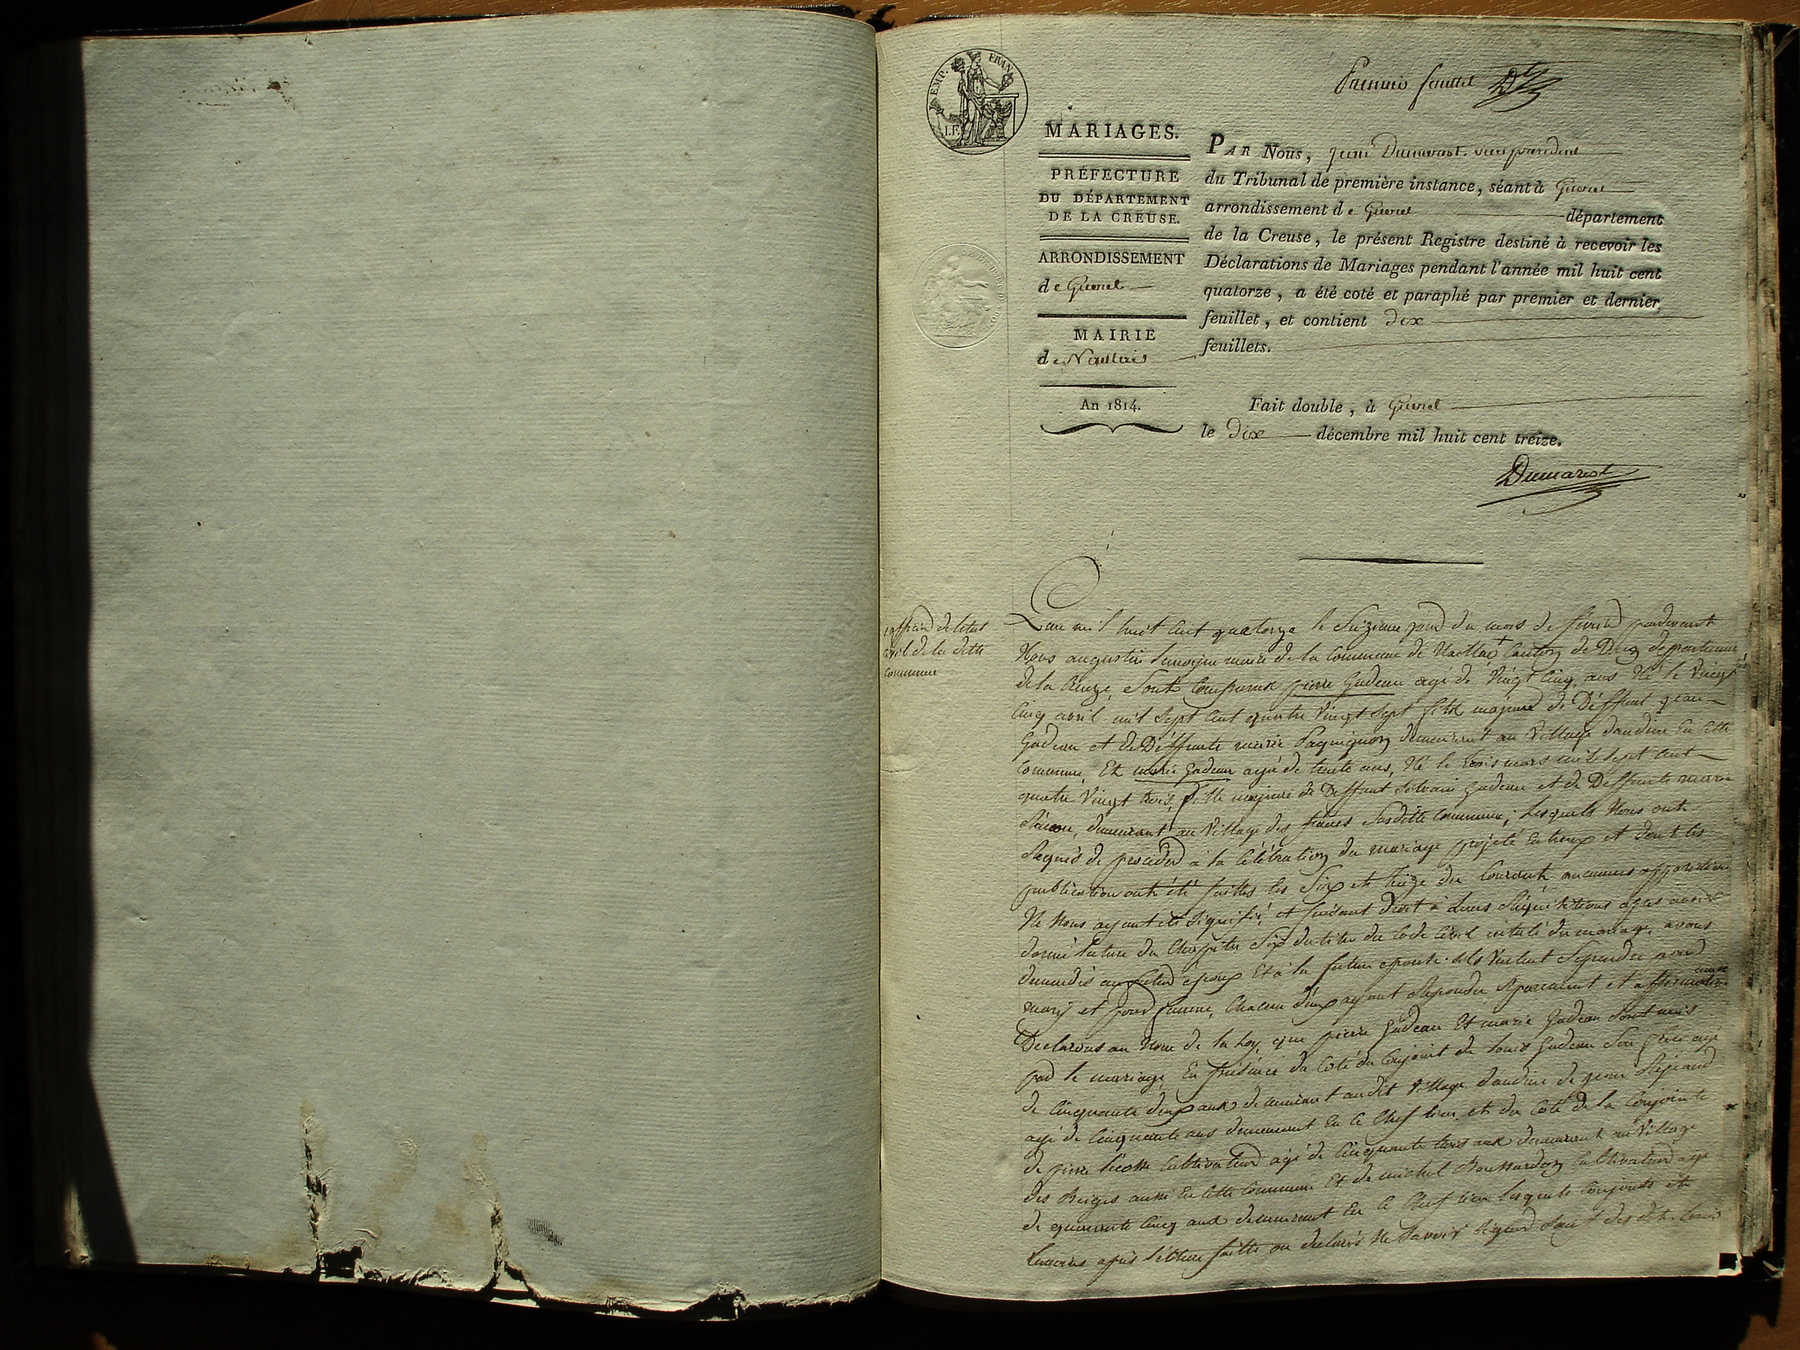 Premier feuillet
EMP. FRAN.
MARIAGES.
PRÉFECTURE
DU DÉPARTEMENT
DE LA CREUSE.
ARRONDISSEMENT
de Gueret
MAIRIE
de
An 1814.
PAR Nous, Dumarest vice president
du Tribunal de première instance, séant à Gueret
arrondissement de Gueret département
de la Creuse, le présent Registre destiné à recevoir les
Déclarations de Mariages pendant l'année mil huit cent
quatorze, a été coté et paraphé par premier et dernier
feuillet, et contient dix
feuillets.
Fait double, à Gueret
le Dix décembre mil huit cent treize.
Dumarest
officier de letat
civil de la ditte
commune
Lan mil huit cent quatorze le Seizieme jour du mois de fevrier pardevant
Nous augustin maire de la commune de canton de Dun departement
de la Creuze, Sont Comparus pierre Gadeau agé de Vingt Cinq ans Né le Vingt
Cinq avril mil Sept Cent quatre Vingt Sept fils majeur de Deffunt jean
Gadeau et de Deffunte marie demeurant au Village En Cette
Commune, Et marie Gadeau agée de trente ans, Né le trois mars mil Sept Cent
quatre Vingt trois, fille majeure de Deffunt Silvain Gadeau et de Deffunte marie
demeurant au Village des Susditte Commune, Lesquels Nous ont
Requis de proceder à la Celebration du mariage projeté Entreux et dont les
publication ont été faittes les Six et treize du Courant aucunes opposition
Ne Nous ayant été Signifié, et faisant Droit à Leurs Réquisitions apres avoir
donné Lecture du Chapitre Six du titre du Code Civil intitulé du mariage, avons
demandés au futur epoux Et à la future epouse Sils Veulent Se prendre pour
mary et pour femme, Chacun deux ayant Repondu Separement et affirmative
ment
Declarons au Nom de la Loy, que pierre Gadeau Et marie Gadeau Sont unis
par le mariage, En présence du Coté du Conjoint de Louis Gadeau Son frere agé
de Cinquante deux ans demeurant audit Village de jean
agé de Cinquante ans demeurant En Ce Chef lieu, et du Coté de la Conjointe
de pierre Cultivateur agé de Cinquante trois ans demeurant au Village
des aussi En Cette Commune Et de michel Cultivateur agé
de quarante Cinq ans demeurant En Ce Chef lieu Lesquels Conjoints et
temoins apres Lecture faitte on declarés Ne Savoir Signer Sauf